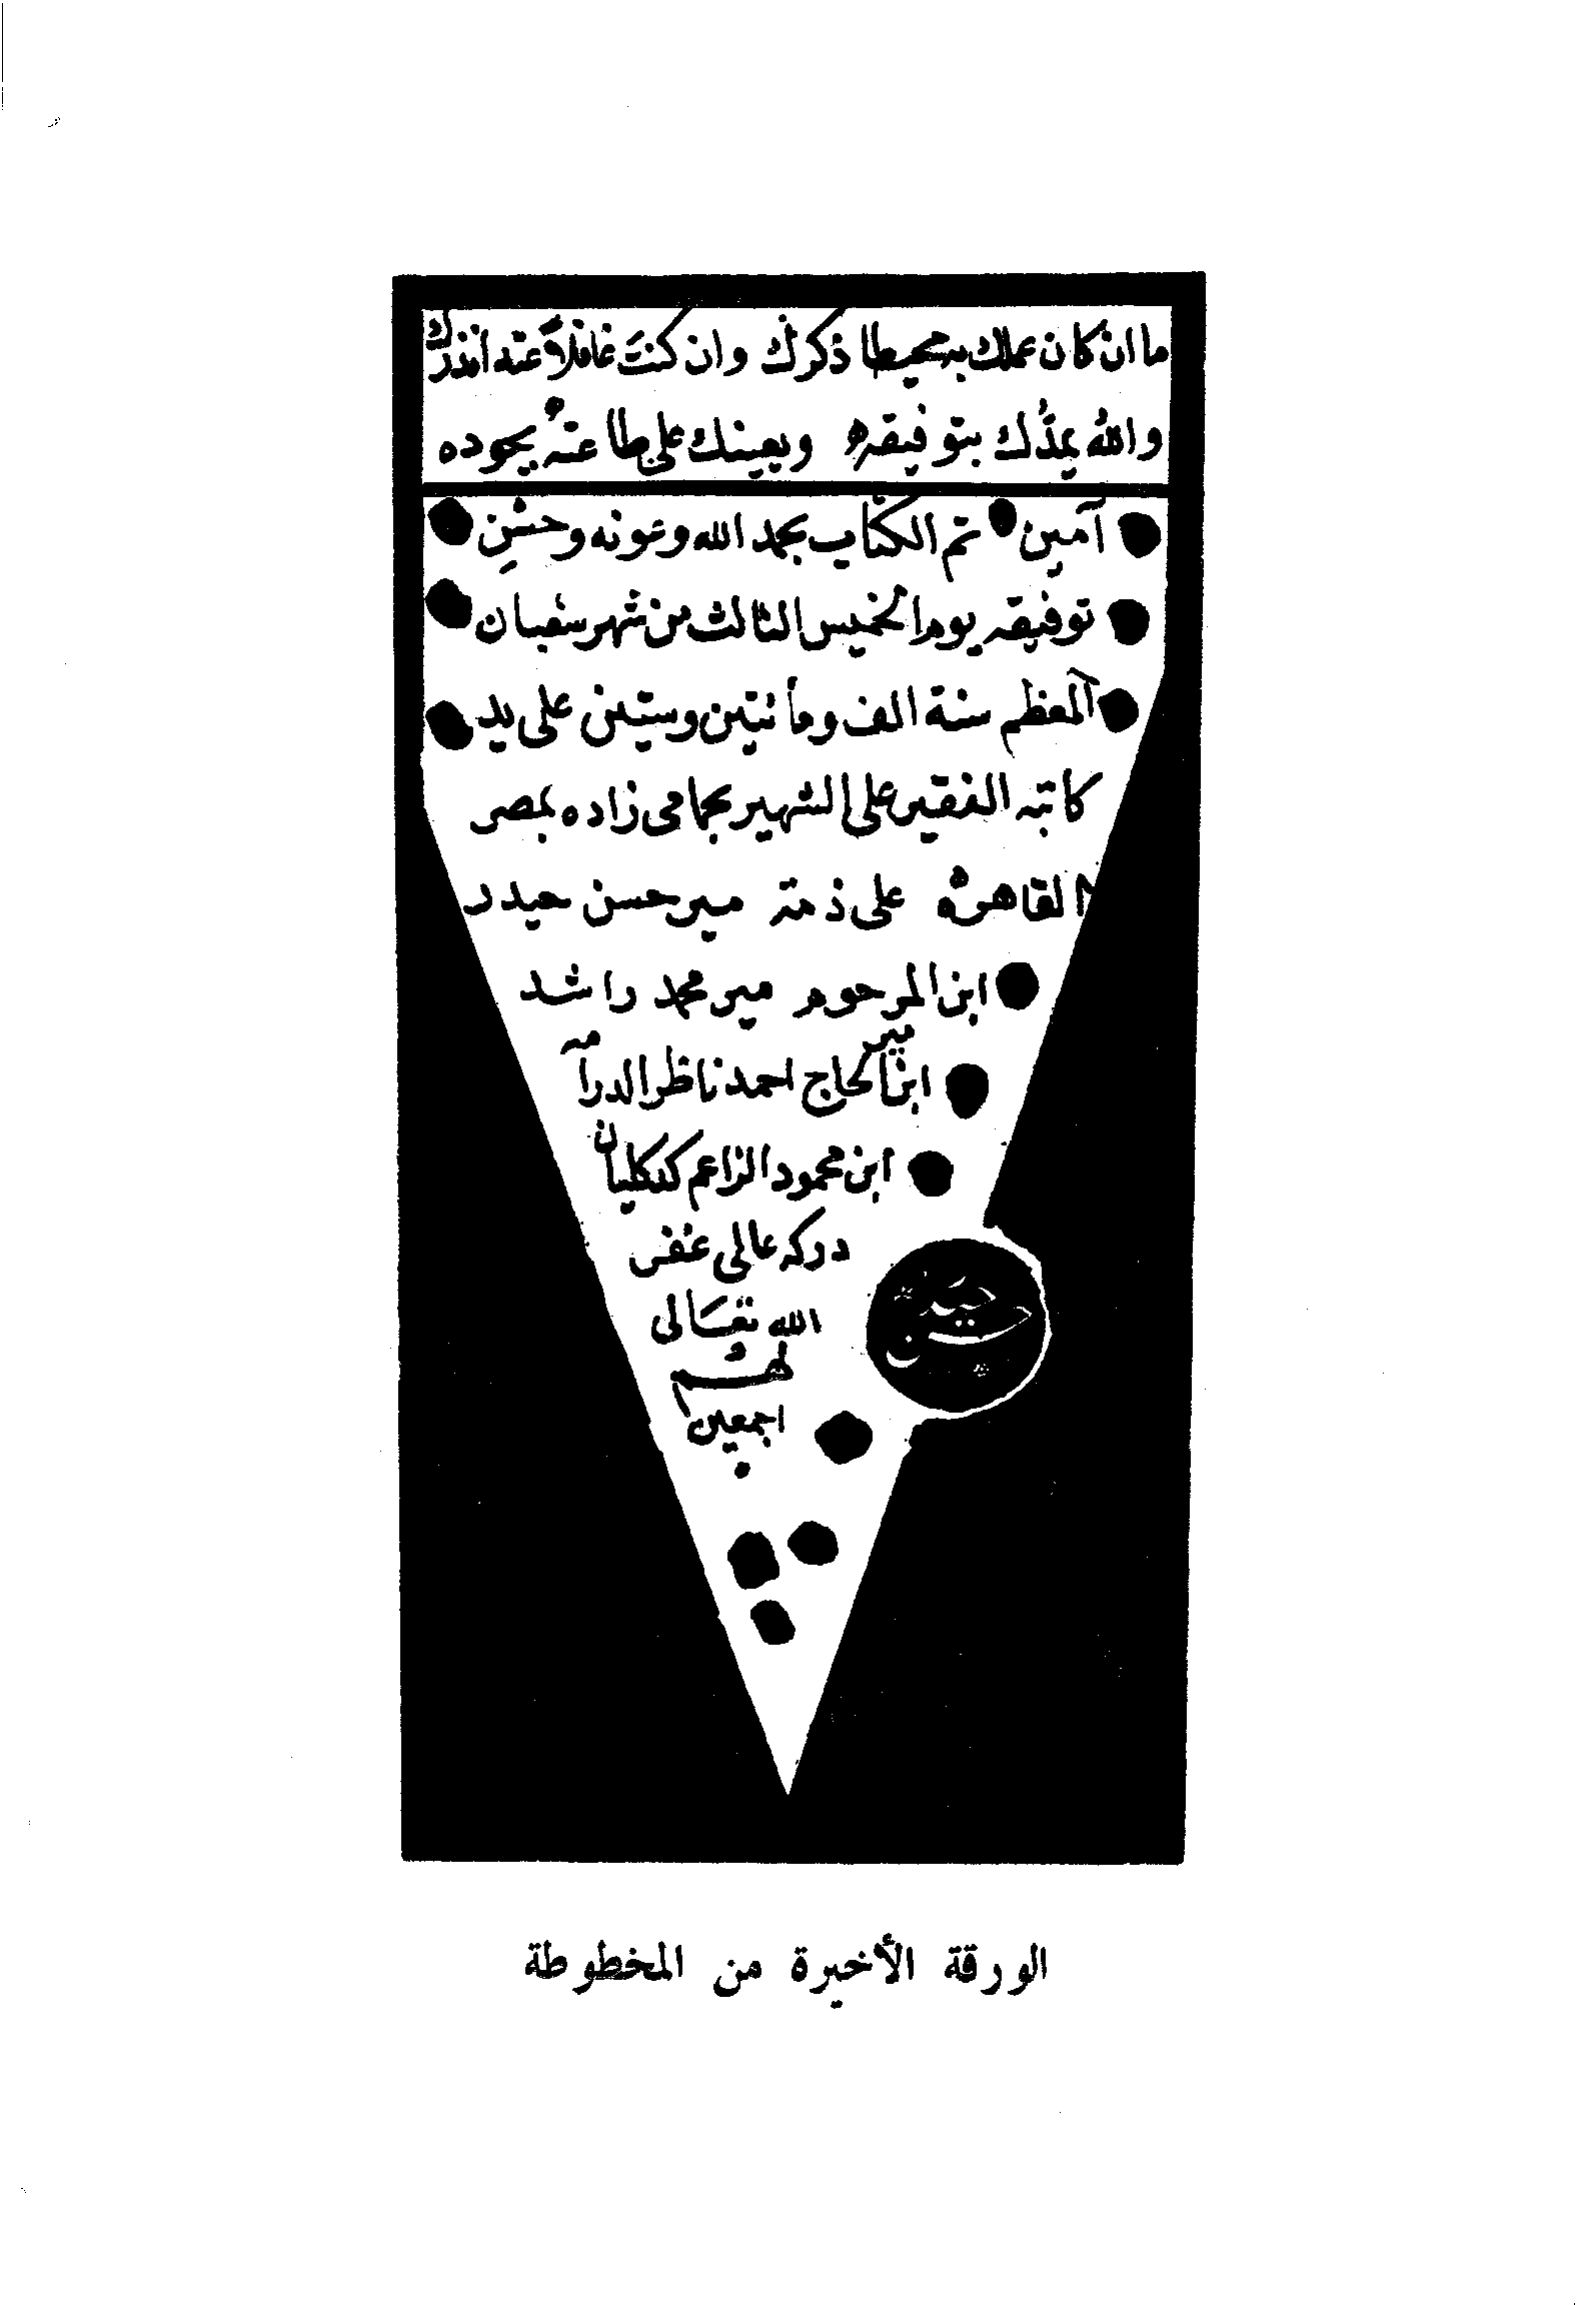 ما ان كان عملك به محيطا ذكرك وان كنتَ غافلاً عنه انذرك
واللهُ يمدُّك بتوفيقه ويعينك على طاعته بجوده
آمين تم الكتاب بحمد الله وعونه وحسن
توفيقه يوم الخميس الثالث من شهر شعبان
المعظم سنة الف ومأتين وستين على يد
كاتبه الفقير على الشهير بجامى زاده بمصر
القاهرة على ذمة مير حسن حيدر
ابن المرحوم مير محمد راشد
ابن مير الحاج احمد ناظر الدرامه
ابن محمود الزاعم
دركه عالى غفر
الله تعَالى
لهم
اجمعين
الورقة الأخيرة من المخطوطة